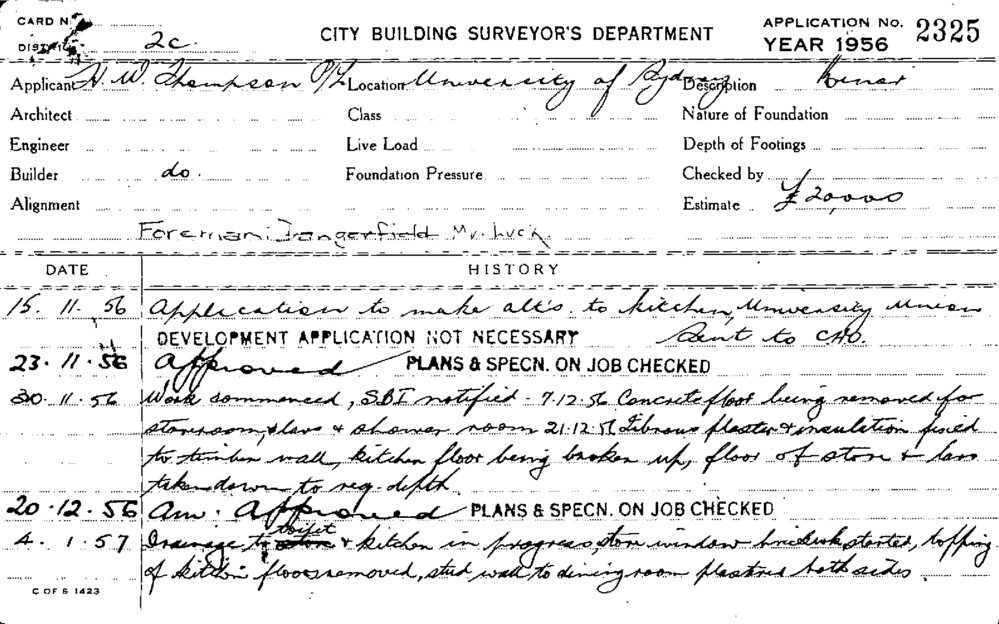 CARD No.
DISTRICT 2c. CITY BUILDING SURVEYOR'S DEPARTMENT APPLICATION No. 2325
YEAR 1956
Applicant H. W. Thompson P/L Location University of Sydney Description
Architect Class Nature of Foundation
Engineer Live Load Depth of Footings
Builder do. Foundation Pressure Checked by
Alignment Estimate £20,000
Foreman: Dangerfield Mr. Luck.
DATE HISTORY
15. 11. 56 Application to make alt's. to kitchen, University Union
DEVELOPMENT APPLICATION NOT NECESSARY Sent to CHO.
23. 11. 56 Approved PLANS & SPECN. ON JOB CHECKED
30. 11. 56 Work commenced, SBI notified - 7.12.56 Concrete floor being removed for
storeroom, lavs & shower room 21.12.56 Fibrous plaster & insulation fixed
to timber wall, kitchen floor being broken up, floor of store & lavs
taken down to req. depth.
20. 12. 56 Am. Approved PLANS & SPECN. ON JOB CHECKED
4. 1. 57 Drainage to toilet & kitchen in progress, store window brickwk started, topping
of kitchen floor removed, stud wall to dining room plastered both sides.
C OF S 1423